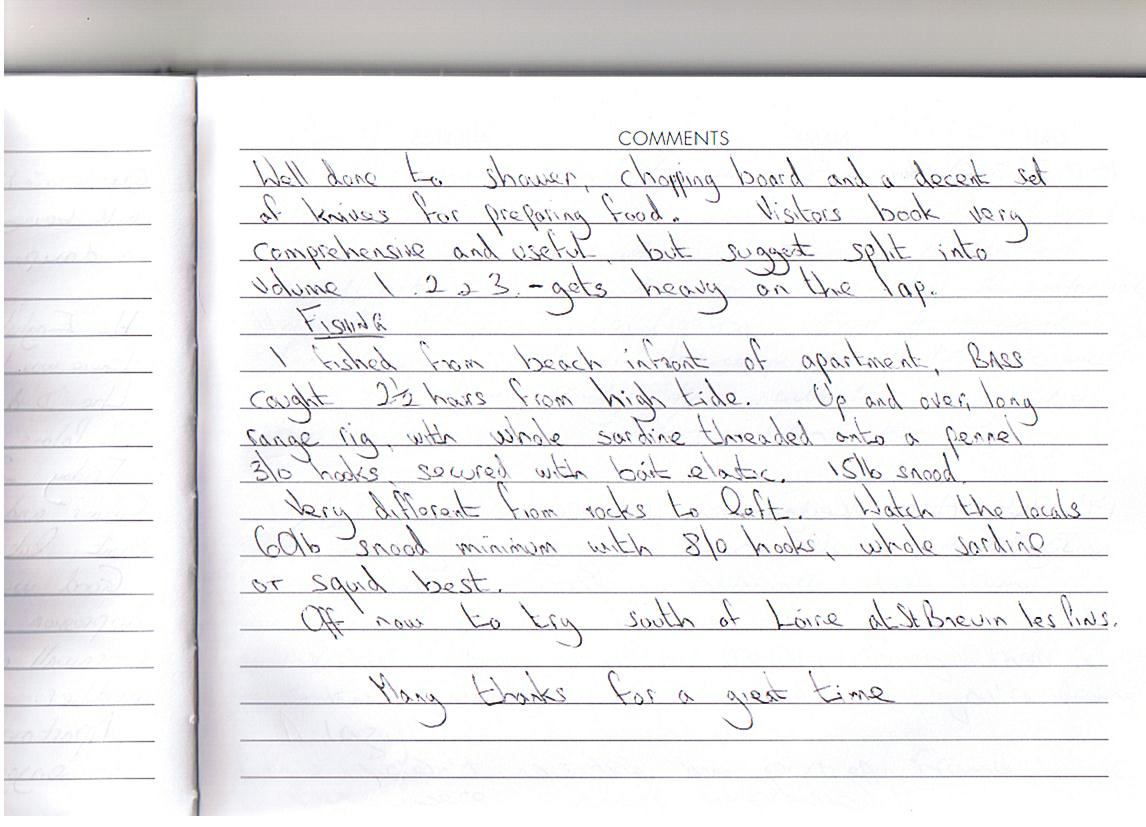 COMMENTS
Well done to shower, chopping board and a decent set
of knives for preparing food. Visitors book very
comprehensive and useful, but suggest split into
volume 1.2,3.-gets heavy on the lap.
FISHING
I fished from beach infront of apartment, BASS
caught 2½ hours from high tide. Up and over, long
range rig, with whole sardine threaded onto a pennel
3/0 hooks, secured with bait elastic. 15lb snood.
Very different from rocks to left. Watch the locals
60lb snood minimum with 8/0 hooks, whole sardine
or squid best.
Off now to try south of Loire at St Brevin les Pins.
Many thanks for a great time